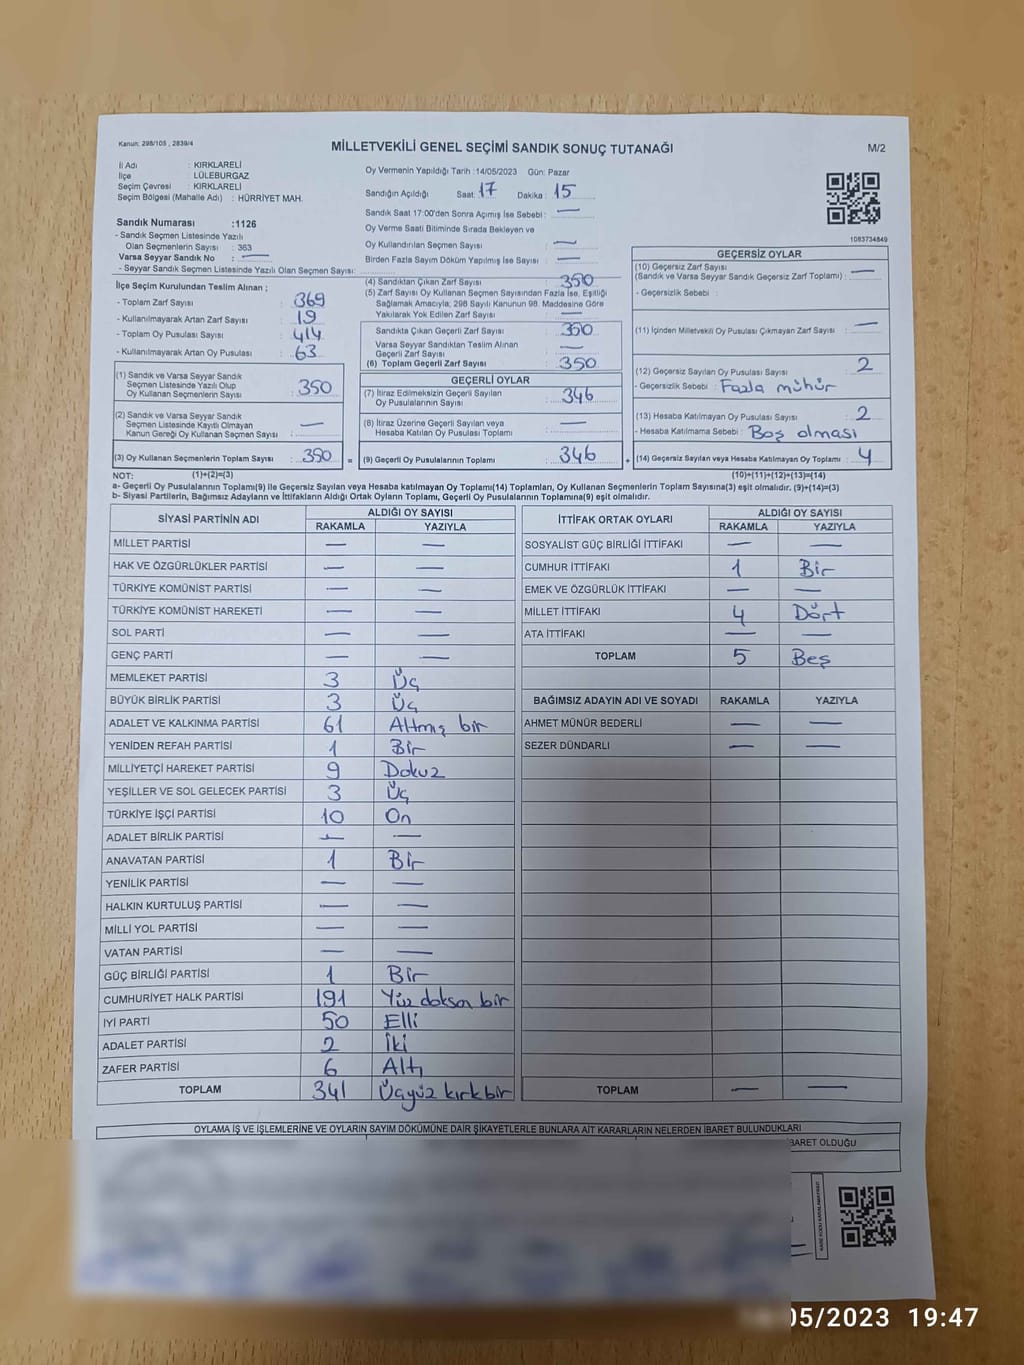 Kanun: 298/105 , 2839/4
MİLLETVEKİLİ GENEL SEÇİMİ SANDIK SONUÇ TUTANAĞI
M/2
İl Adı : KIRKLARELİ
İlçe : LÜLEBURGAZ
Seçim Çevresi : KIRKLARELİ
Seçim Bölgesi (Mahalle Adı) : HÜRRİYET MAH.
Sandık Numarası :1126
- Sandık Seçmen Listesinde Yazılı
Olan Seçmenlerin Sayısı : 363
Varsa Seyyar Sandık No : —
- Seyyar Sandık Seçmen Listesinde Yazılı Olan Seçmen Sayısı:
İlçe Seçim Kurulundan Teslim Alınan ;
- Toplam Zarf Sayısı : 369
- Kullanılmayarak Artan Zarf Sayısı : 19
- Toplam Oy Pusulası Sayısı : 414
- Kullanılmayarak Artan Oy Pusulası : 63
(1) Sandık ve Varsa Seyyar Sandık
Seçmen Listesinde Yazılı Olup
Oy Kullanan Seçmenlerin Sayısı : 350
(2) Sandık ve Varsa Seyyar Sandık
Seçmen Listesinde Kayıtlı Olmayan
Kanun Gereği Oy Kullanan Seçmen Sayısı : —
(3) Oy Kullanan Seçmenlerin Toplam Sayısı : 350 =
Oy Vermenin Yapıldığı Tarih :14/05/2023 Gün: Pazar
Sandığın Açıldığı Saat: 17 Dakika: 15
Sandık Saat 17:00'den Sonra Açımış İse Sebebi : —
Oy Verme Saati Bitiminde Sırada Bekleyen ve
Oy Kullandırılan Seçmen Sayısı : —
Birden Fazla Sayım Döküm Yapılmış İse Sayısı : —
(4) Sandıktan Çıkan Zarf Sayısı : 350
(5) Zarf Sayısı Oy Kullanan Seçmen Sayısından Fazla İse, Eşitliği
Sağlamak Amacıyla; 298 Sayılı Kanunun 98. Maddesine Göre
Yakılarak Yok Edilen Zarf Sayısı : —
Sandıkta Çıkan Geçerli Zarf Sayısı : 350
Varsa Seyyar Sandıktan Teslim Alınan
Geçerli Zarf Sayısı : —
(6) Toplam Geçerli Zarf Sayısı : 350
GEÇERLİ OYLAR
(7) İtiraz Edilmeksizin Geçerli Sayılan
Oy Pusulalarının Sayısı : 346
(8) İtiraz Üzerine Geçerli Sayılan veya
Hesaba Katılan Oy Pusulası Toplamı : —
(9) Geçerli Oy Pusulalarının Toplamı : 346 +
1083734849
GEÇERSİZ OYLAR
(10) Geçersiz Zarf Sayısı
(Sandık ve Varsa Seyyar Sandık Geçersiz Zarf Toplamı) : —
- Geçersizlik Sebebi :
(11) İçinden Milletvekili Oy Pusulası Çıkmayan Zarf Sayısı : —
(12) Geçersiz Sayılan Oy Pusulası Sayısı : 2
- Geçersizlik Sebebi : Fazla mühür
(13) Hesaba Katılmayan Oy Pusulası Sayısı : 2
- Hesaba Katılmama Sebebi : Boş olması
(14) Geçersiz Sayılan veya Hesaba Katılmayan Oy Toplamı : 4
NOT: (1)+(2)=(3) (10)+(11)+(12)+(13)=(14)
a- Geçerli Oy Pusulalarının Toplamı(9) ile Geçersiz Sayılan veya Hesaba katılmayan Oy Toplamı(14) Toplamları, Oy Kullanan Seçmenlerin Toplam Sayısına(3) eşit olmalıdır. (9)+(14)=(3)
b- Siyasi Partilerin, Bağımsız Adayların ve İttifakların Aldığı Ortak Oyların Toplamı, Geçerli Oy Pusulalarının Toplamına(9) eşit olmalıdır.
SİYASİ PARTİNİN ADI ALDIĞI OY SAYISI
RAKAMLA YAZIYLA
MİLLET PARTİSİ — —
HAK VE ÖZGÜRLÜKLER PARTİSİ — —
TÜRKİYE KOMÜNİST PARTİSİ — —
TÜRKİYE KOMÜNİST HAREKETİ — —
SOL PARTİ — —
GENÇ PARTİ — —
MEMLEKET PARTİSİ 3 Üç
BÜYÜK BİRLİK PARTİSİ 3 Üç
ADALET VE KALKINMA PARTİSİ 61 Altmış bir
YENİDEN REFAH PARTİSİ 1 Bir
MİLLİYETÇİ HAREKET PARTİSİ 9 Dokuz
YEŞİLLER VE SOL GELECEK PARTİSİ 3 Üç
TÜRKİYE İŞÇİ PARTİSİ 10 On
ADALET BİRLİK PARTİSİ — —
ANAVATAN PARTİSİ 1 Bir
YENİLİK PARTİSİ — —
HALKIN KURTULUŞ PARTİSİ — —
MİLLİ YOL PARTİSİ — —
VATAN PARTİSİ — —
GÜÇ BİRLİĞİ PARTİSİ 1 Bir
CUMHURİYET HALK PARTİSİ 191 Yüz doksan bir
İYİ PARTİ 50 Elli
ADALET PARTİSİ 2 İki
ZAFER PARTİSİ 6 Altı
TOPLAM 341 Üçyüz kırk bir
İTTİFAK ORTAK OYLARI ALDIĞI OY SAYISI
RAKAMLA YAZIYLA
SOSYALİST GÜÇ BİRLİĞİ İTTİFAKI — —
CUMHUR İTTİFAKI 1 Bir
EMEK VE ÖZGÜRLÜK İTTİFAKI — —
MİLLET İTTİFAKI 4 Dört
ATA İTTİFAKI — —
TOPLAM 5 Beş
BAĞIMSIZ ADAYIN ADI VE SOYADI RAKAMLA YAZIYLA
AHMET MÜNÜR BEDERLİ — —
SEZER DÜNDARLI — —
TOPLAM — —
OYLAMA İŞ VE İŞLEMLERİNE VE OYLARIN SAYIM DÖKÜMÜNE DAİR ŞİKAYETLERLE BUNLARA AİT KARARLARIN NELERDEN İBARET BULUNDUKLARI
İBARET OLDUĞU
05/2023 19:47